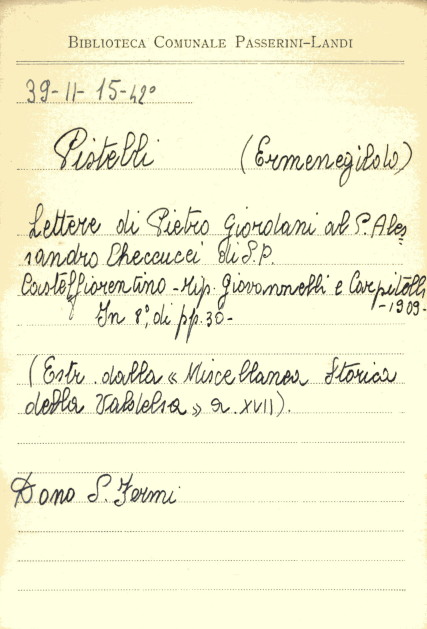 BIBLIOTECA COMUNALE PASSERINI-LANDI
39-II-15-42°
Pistelli (Ermenegildo)
Lettere di Pietro Giordani al P. Ales=
sandro Checcucci di S.P.
Castelfiorentino - tip. Giovannelli e Carpitelli
-1909-
In 8°, di pp. 30-
(Estr. dalla « Miscellanea Storica
della Valdelsa » a. XVII).
Dono S. Fermi